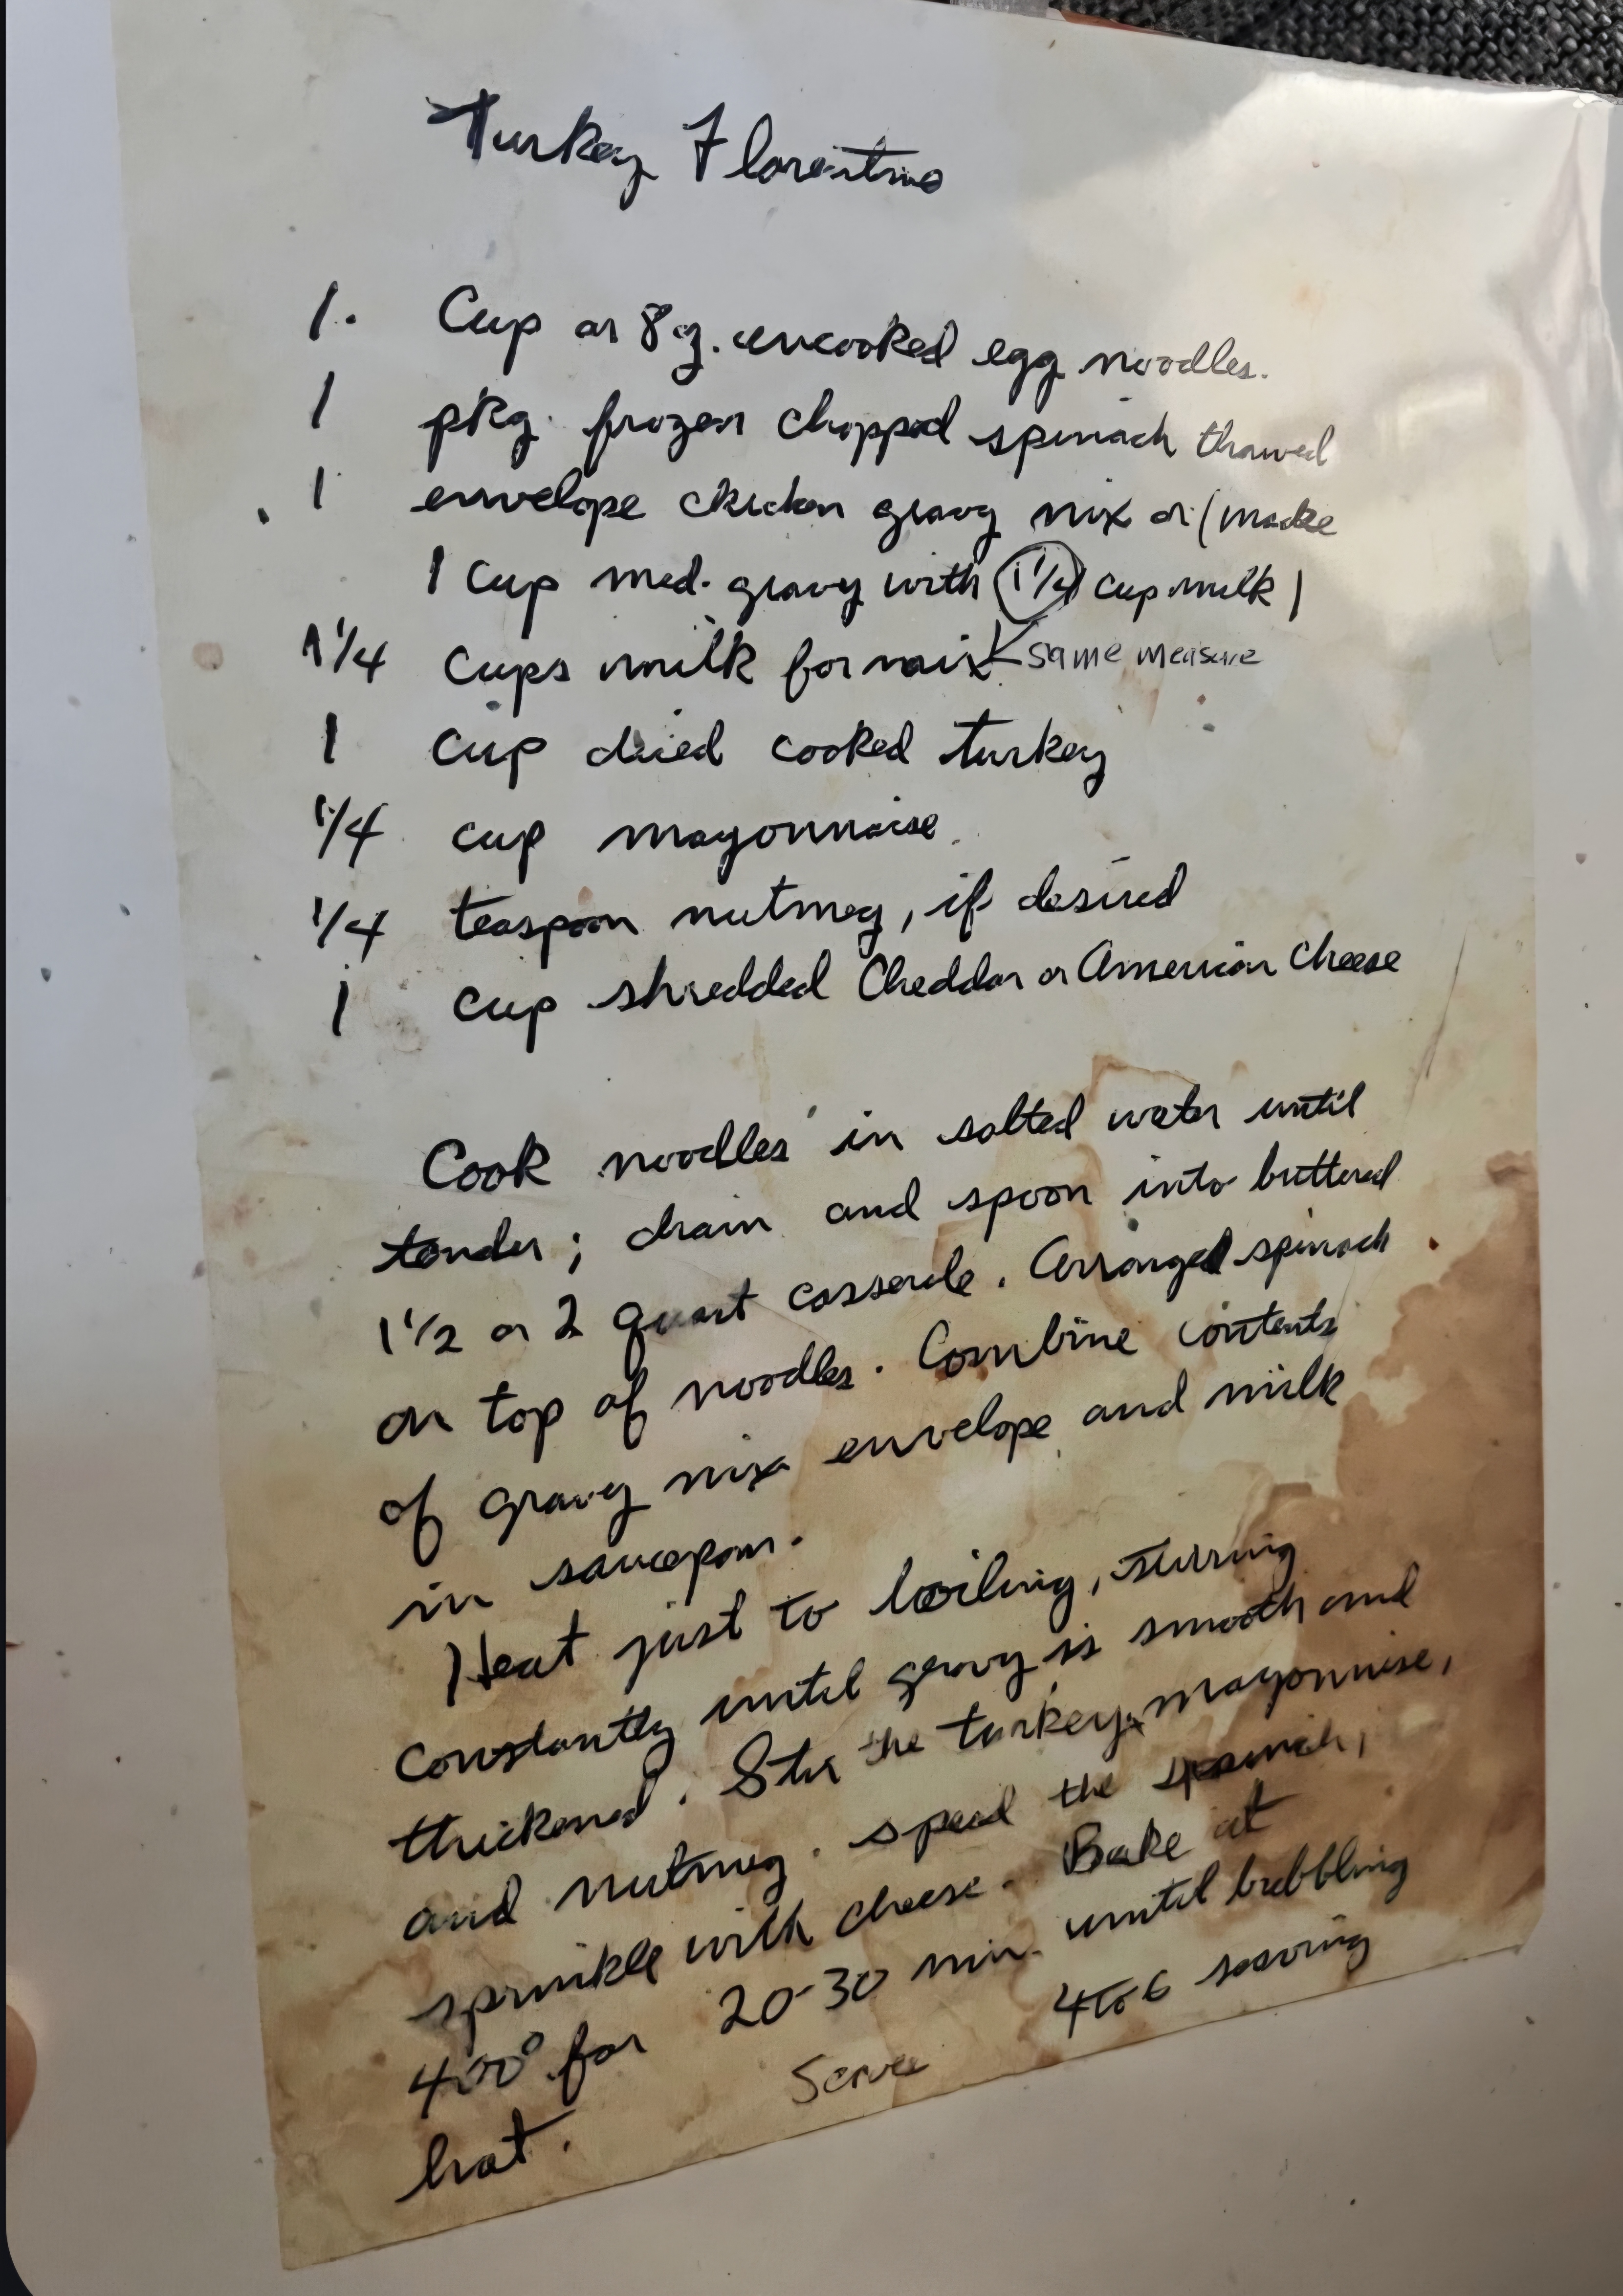 Turkey Florentine
1. Cup or 8 oz. uncooked egg noodles.
1 pkg. frozen chopped spinach thawed
1 envelope chicken gravy mix or (make
1 cup med. gravy with 1 1/4 cup milk)
1 1/4 cups milk for mix < same measure
1 cup diced cooked turkey
1/4 cup mayonnaise
1/4 teaspoon nutmeg, if desired
1 cup shredded Cheddar or American Cheese
Cook noodles in salted water until
tender; drain and spoon into buttered
1 1/2 or 2 quart casserole. Arranged spinach
on top of noodles. Combine contents
of gravy mix envelope and milk
in saucepan.
Heat just to boiling, stirring
constantly until gravy is smooth and
thickened. Stir the turkey, mayonnise,
and nutmeg. spead the spinach,
sprinkle with cheese. Bake at
400° for 20-30 min. until bubbling
hot. Serve 4 to 6 serving